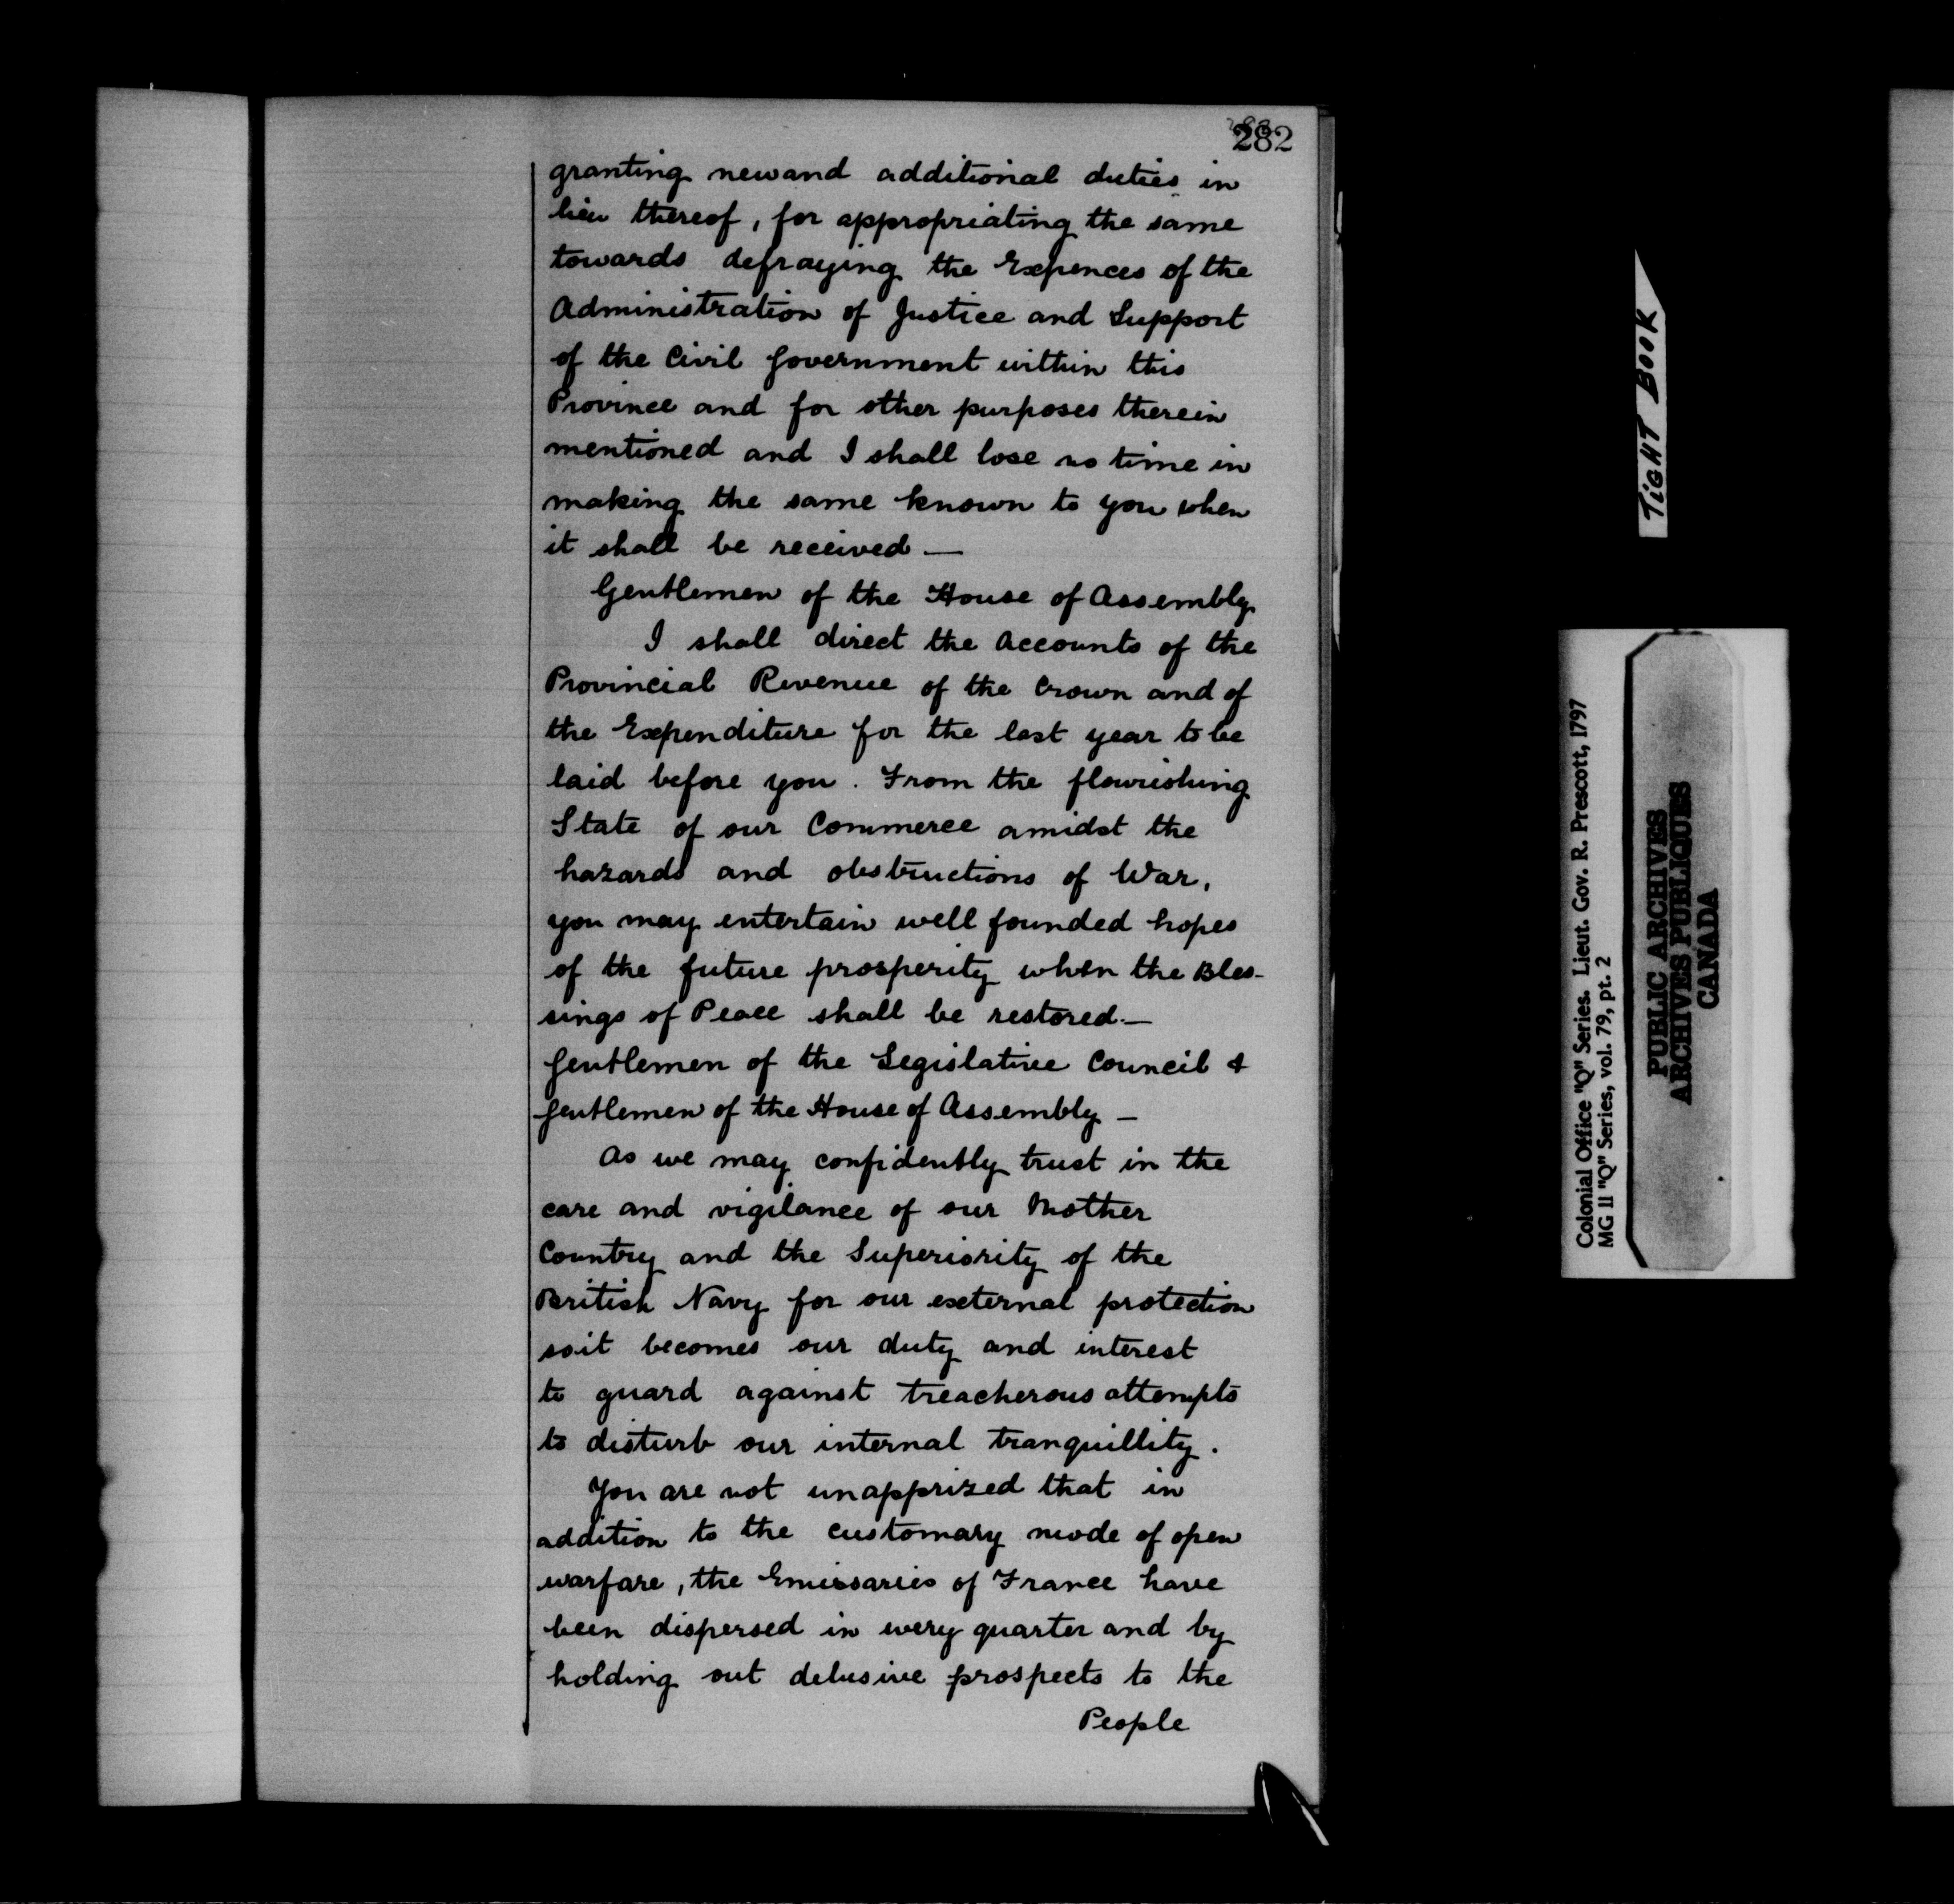 282
granting new and additional duties in
lieu thereof, for appropriating the same
towards defraying the Expences of the
Administration of Justice and Support
of the Civil Government within this
Province and for other purposes therein
mentioned and I shall lose no time in
making the same known to you when
it shall be received —
Gentlemen of the House of Assembly
I shall direct the Accounts of the
Provincial Revenue of the Crown and of
the Expenditure for the last year to be
laid before you. From the flourishing
State of our Commerce amidst the
hazards and obstructions of War,
you may entertain well founded hopes
of the future prosperity when the Bles-
sings of Peace shall be restored. —
Gentlemen of the Legislative Council &
Gentlemen of the House of Assembly —
As we may confidently trust in the
care and vigilance of our Mother
Country and the Superiority of the
British Navy for our external protection
so it becomes our duty and interest
to guard against treacherous attempts
to disturb our internal tranquillity.
You are not unapprized that in
addition to the customary mode of open
warfare, the Emissaries of France have
been dispersed in every quarter and by
holding out delusive prospects to the
People
TIGHT BOOK
Colonial Office "Q" Series. Lieut. Gov. R. Prescott, 1797
MG 11 "Q" Series, vol. 79, pt. 2
PUBLIC ARCHIVES
ARCHIVES PUBLIQUES
CANADA